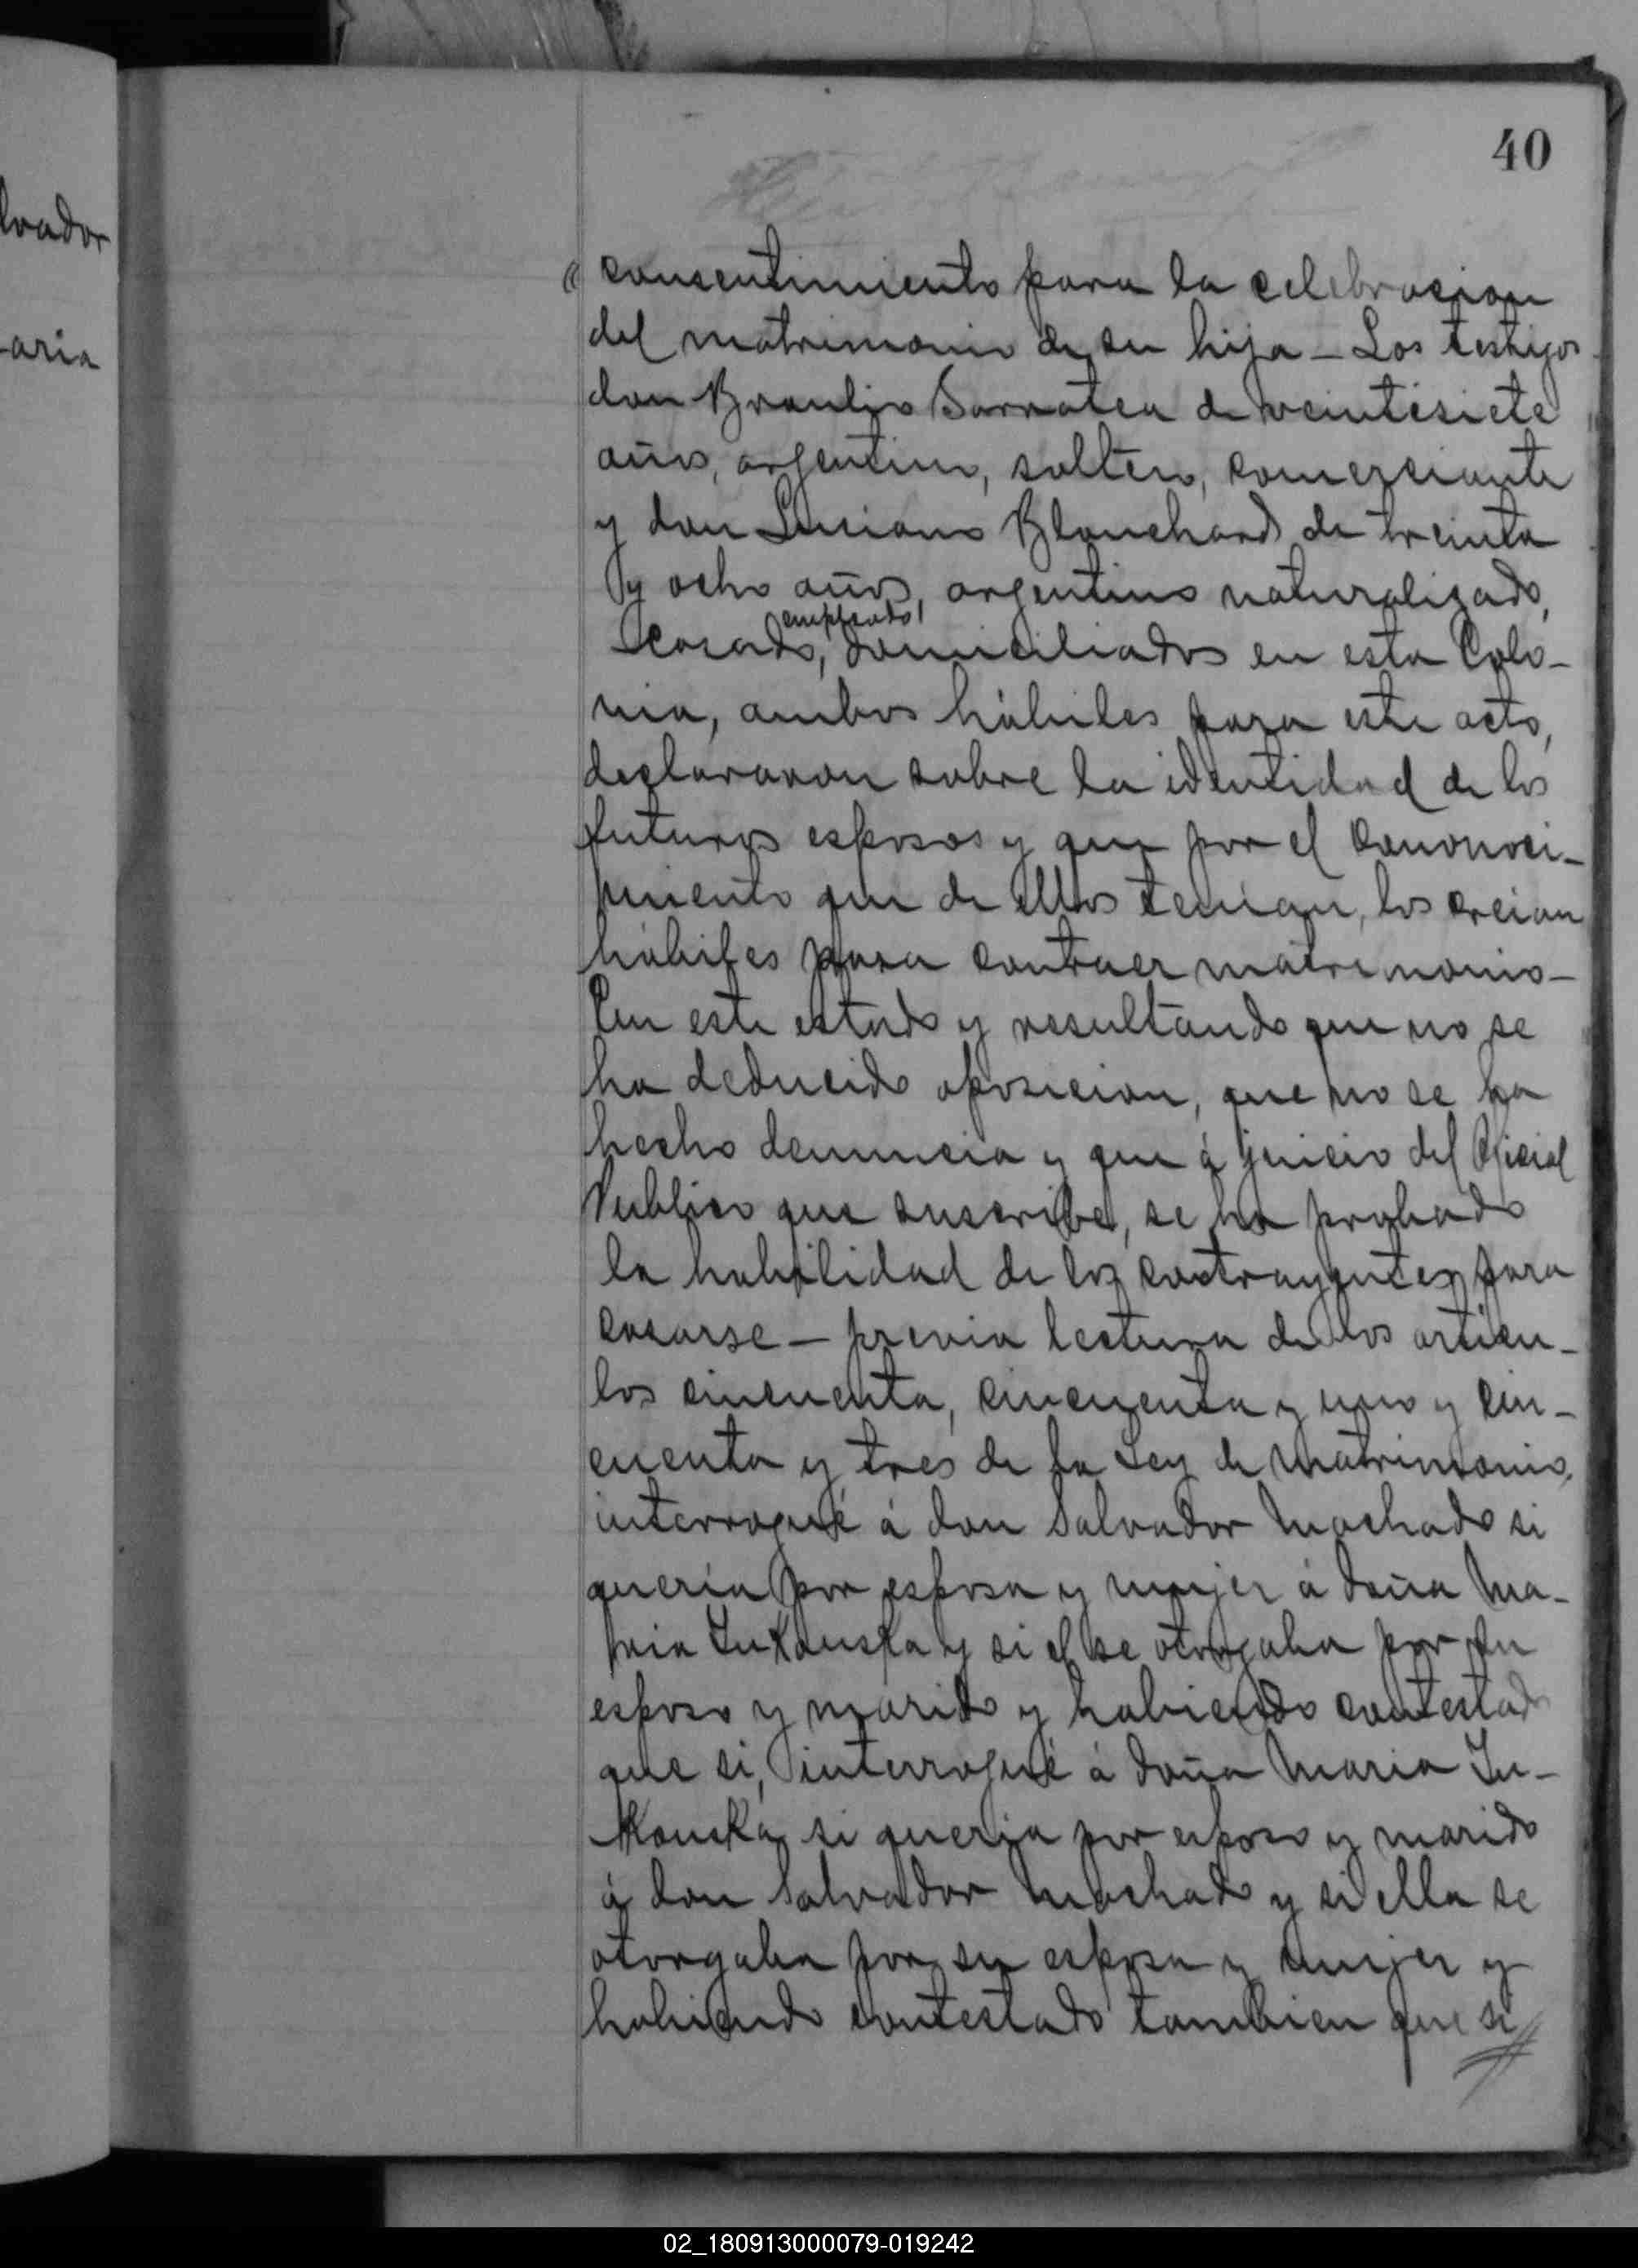 40
lvador
aria
consentimiento para la celebracion
del matrimonio de su hija — Los testigos
don Braulio Sarratea de veintisiete
años, argentino, soltero, comerciante
y don Luciano Blanchard de treinta
y ocho años, argentino naturalizado,
empleado,
casado, domiciliados en esta Colo-
nia, ambos hábiles para este acto,
declararon sobre la identidad de los
futuros esposos y que por el cononoci-
miento que de ellos tenian, los creian
hábiles para contraer matrimonio —
En este estado y resultando que no se
ha deducido oposicion, que no se ha
hecho denuncia y que á juicio del Oficial
Publico que suscribe, se ha probado
la habilidad de los contrayentes para
casarse — previa lectura de los articu-
los cincuenta, cincuenta y uno y cin-
cuenta y tres de la Ley de Matrimonio,
interrogué á don Salvador Machado si
queria por esposa y mujer á doña Ma-
ria y si el se otorgaba por su
esposo y marido y habiendo contestado
que si, interrogué á doña Maria
si queria por esposo y marido
á don Salvador Machado y si ella se
otorgaba por su esposa y mujer y
habiendo contestado tambien que si
02_180913000079-019242